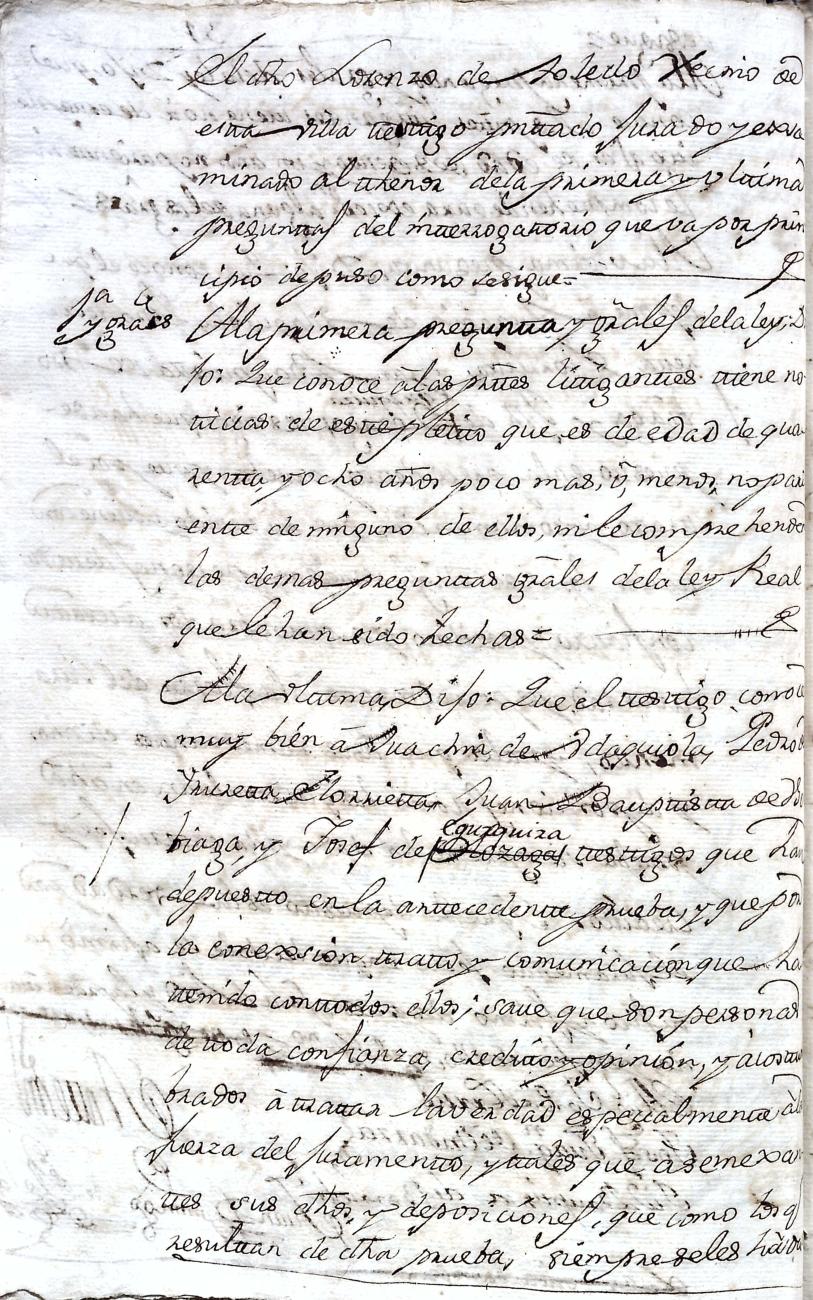 El dho Lorenzo de Toledo Vecino de
esta villa testigo pntado Jurado y exsa
minado al thenor de la primera y vltima
preguntas del interrogatorio que va por prin
cipio depuso como se sigue=
1ª y grales
A la primera pregunta y grales de la ley, Di
jo: Que conoce â las ptes litigantes tiene no
ticias de este pleito que es de edad de qua
renta, y ocho años poco mas, ô, menos, no pari
ente de ninguno de ellos, ni le comprehenden
las demas preguntas grales de la ley Real
que le han sido hechas=
A la vltima, Dijo: Que el testigo conoce
muy bién â Juachin de Ydaquiola, Pedro de
Yrureta Elorrieta, Juan Bauptista de
biaga, y Josef de Eguzquiza testigos que han
depuesto en la antecedente prueba, y que por
la conexsión trato y comunicación que ha
tenido con todos ellos, save que son personas
de toda confianza, credito y opinión, y acostum
brados â tratar la verdad especialmente â la
fuerza del Juramento, y tales que â semexan
tes sus dhos, y deposiciones, que como los q
resultan de dha prueba, siempre seles ha